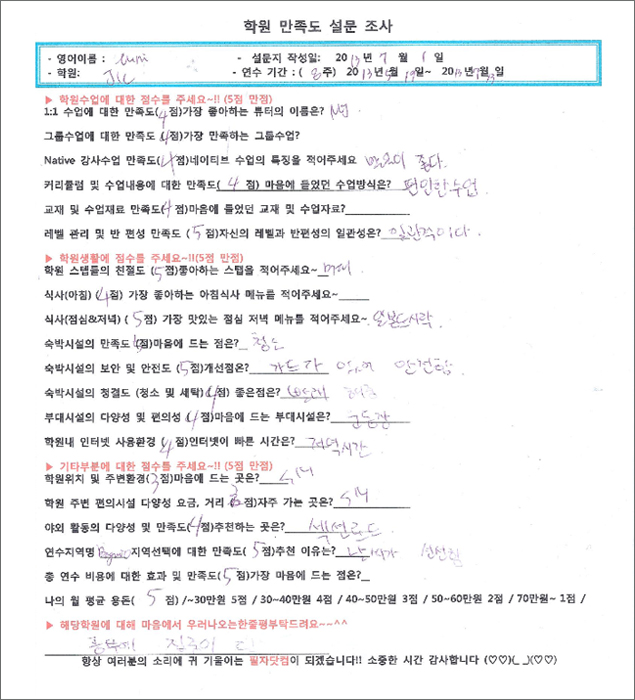 학원 만족도 설문 조사
- 영어이름 : - 설문지 작성일: 2013년 7월 1일
- 학원: JIC - 연수 기간 : ( 8주) 2013년 5월 19일~ 2013년 7월 일
▶ 학원수업에 대한 점수를 주세요~!! (5점 만점)
1:1 수업에 대한 만족도(4점)가장 좋아하는 튜터의 이름은?
그룹수업에 대한 만족도 (4점)가장 만족하는 그룹수업?
Native 강사수업 만족도(4점)네이티브 수업의 특징을 적어주세요 발음이 좋다.
커리큘럼 및 수업내용에 대한 만족도( 4 점) 마음에 들었던 수업방식은? 편안한 수업.
교재 및 수업재료 만족도(4점)마음에 들었던 교재 및 수업자료?
레벨 관리 및 반 편성 만족도 ( 5점)자신의 레벨과 반편성의 일관성은? 일관적이다.
▶ 학원생활에 점수를 주세요~!!(5점 만점)
학원 스텝들의 친절도 (5점)좋아하는 스텝을 적어주세요~
식사(아침) (4점) 가장 좋아하는 아침식사 메뉴를 적어주세요~
식사(점심&저녁) ( 5점) 가장 맛있는 점심 저녁 메뉴를 적어주세요~ 일본도시락
숙박시설의 만족도 (점)마음에 드는 점은? 청소
숙박시설의 보안 및 안전도 (5점)개선점은? 가드가 있어 안전함
숙박시설의 청결도 (청소 및 세탁)(4점) 좋은점은? 빨래
부대시설의 다양성 및 편의성 (4점)마음에 드는 부대시설은? 운동장
학원내 인터넷 사용환경 (4점)인터넷이 빠른 시간은? 저녁시간
▶ 기타부분에 대한 점수를 주세요~!! (5점 만점)
학원위치 및 주변환경(3점)마음에 드는 곳은? SM
학원 주변 편의시설 다양성 요금, 거리 (3점)자주 가는 곳은? SM
야외 활동의 다양성 및 만족도(4점)추천하는 곳은? 섹션로드
연수지역명 Baguio 지역선택에 대한 만족도( 5점)추천 이유는? 날씨가 선선함
총 연수 비용에 대한 효과 및 만족도(5점)가장 마음에 드는 점은?
나의 월 평균 용돈( 5점) /~30만원 5점 / 30~40만원 4점 / 40~50만원 3점 / 50~60만원 2점 / 70만원~ 1점 /
▶ 해당학원에 대해 마음에서 우러나오는한줄평부탁드려요~~^^
항상 여러분의 소리에 귀 기울이는 필자닷컴이 되겠습니다!! 소중한 시간 감사합니다 (♡♡)(_ _)(♡♡)